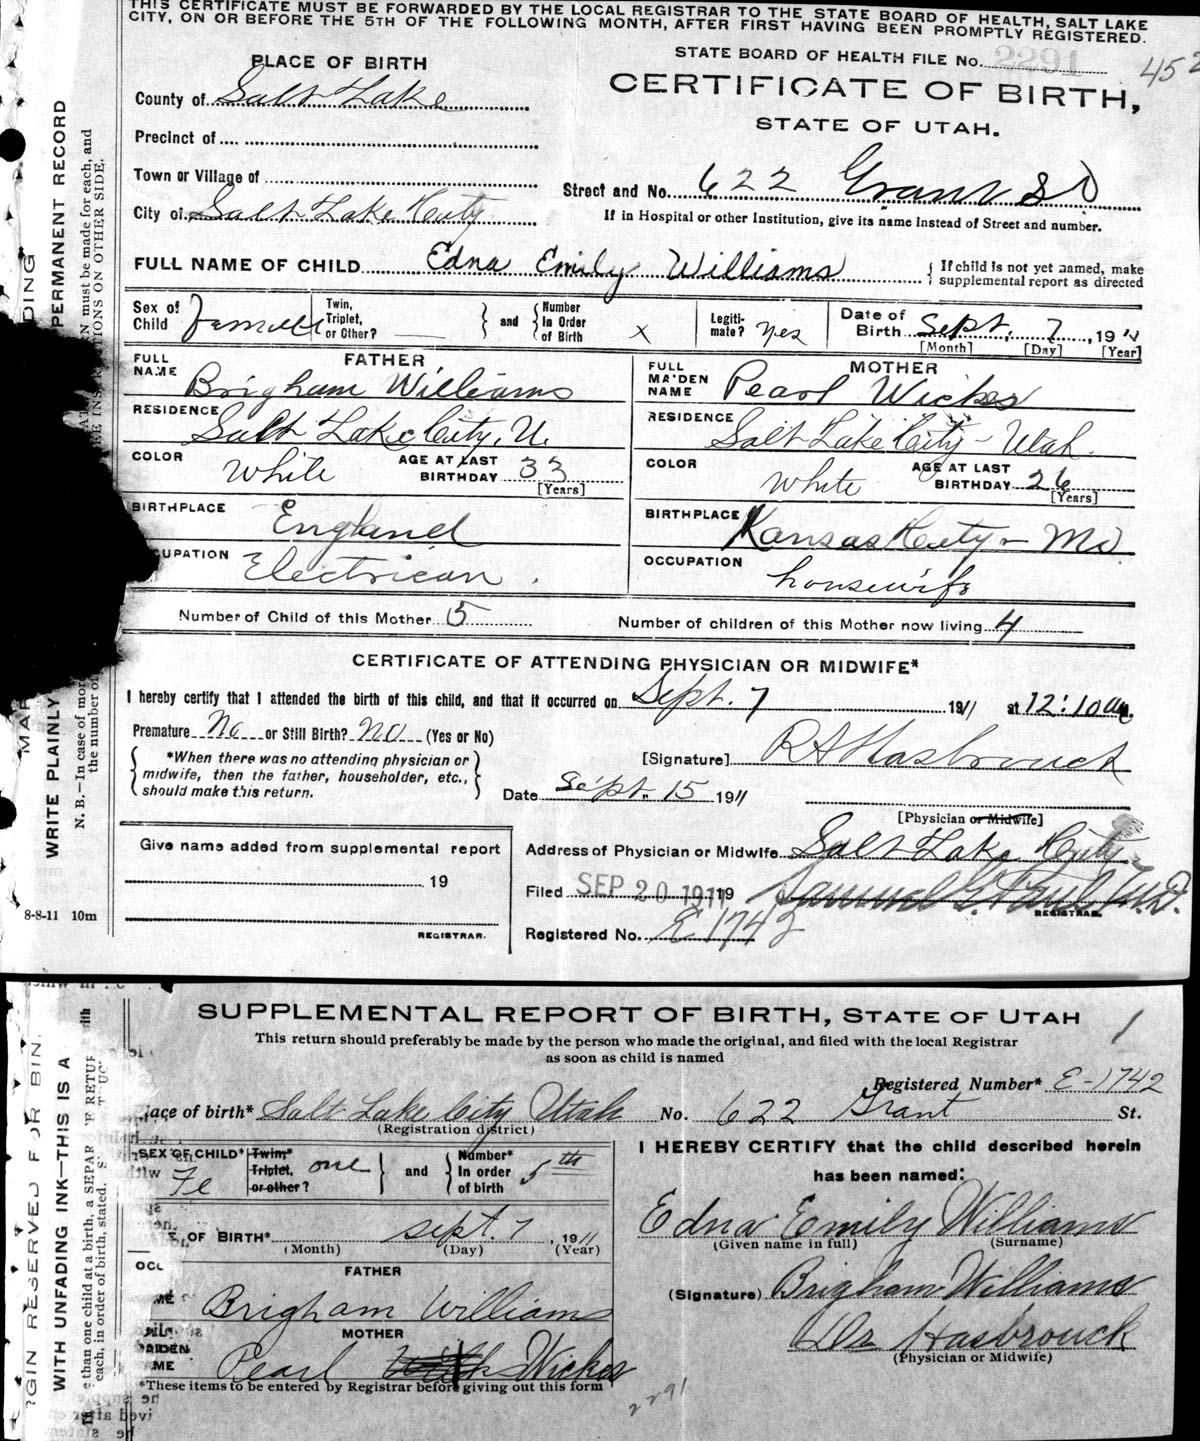 THIS CERTIFICATE MUST BE FORWARDED BY THE LOCAL REGISTRAR TO THE STATE BOARD OF HEALTH, SALT LAKE
CITY, ON OR BEFORE THE 5TH OF THE FOLLOWING MONTH, AFTER FIRST HAVING BEEN PROMPTLY REGISTERED.
STATE BOARD OF HEALTH FILE No. 2291
452
PLACE OF BIRTH
CERTIFICATE OF BIRTH,
STATE OF UTAH.
County of Salt Lake
Precinct of
Town or Village of
Street and No. 622 Grant St
City of Salt Lake City
If in Hospital or other Institution, give its name instead of Street and number.
FULL NAME OF CHILD Edna Emily Williams
If child is not yet named, make
supplemental report as directed
Sex of Child Female
Twin, Triplet, or Other?
and
Number in Order of Birth x
Legiti-mate? Yes
Date of Birth Sept. 7, 1911
[Month] [Day] [Year]
FATHER
FULL NAME Brigham Williams
RESIDENCE Salt Lake City, U.
COLOR White
AGE AT LAST BIRTHDAY 33
[Years]
BIRTHPLACE England
OCCUPATION Electrican.
MOTHER
FULL MAIDEN NAME Pearl Wickes
RESIDENCE Salt Lake City - Utah.
COLOR White
AGE AT LAST BIRTHDAY 26
[Years]
BIRTHPLACE Kansas City - Mo
OCCUPATION housewife
Number of Child of this Mother 5
Number of children of this Mother now living 4
CERTIFICATE OF ATTENDING PHYSICIAN OR MIDWIFE*
I hereby certify that I attended the birth of this child, and that it occurred on Sept. 7 1911 at 12:10 am.
Premature No or Still Birth? no (Yes or No)
*When there was no attending physician or
midwife, then the father, householder, etc.,
should make this return.
[Signature] R A Hasbrouck
Date Sept. 15 1911
[Physician or Midwife]
Give name added from supplemental report
19
REGISTRAR.
8-8-11 10m
Address of Physician or Midwife Salt Lake City
Filed SEP 20 1911 19 Samuel G. Paul M.D.
REGISTRAR.
Registered No. E 1742
PERMANENT RECORD
WRITE PLAINLY
N. B.—In case of mor
the number of
SUPPLEMENTAL REPORT OF BIRTH, STATE OF UTAH
1
This return should preferably be made by the person who made the original, and filed with the local Registrar
as soon as child is named
Registered Number* E-1742
lace of birth* Salt Lake City Utah No. 622 Grant St.
(Registration district)
SEX OF CHILD* Fe
Twin,* Triplet, or other? one
and
Number* In order of birth 5th
E OF BIRTH* sept. 7, 1911
(Month) (Day) (Year)
FATHER
ME Brigham Williams
MOTHER
AIDEN
ME Pearl Wickes
*These items to be entered by Registrar before giving out this form
I HEREBY CERTIFY that the child described herein
has been named:
Edna Emily Williams
(Given name in full) (Surname)
(Signature) Brigham Williams
Dr Hasbrouck
(Physician or Midwife)
2291
GIN RESERVED FOR BIN
WITH UNFADING INK—THIS IS A
e than one child at a birth, a SEPAR
each, in order of birth, stated.